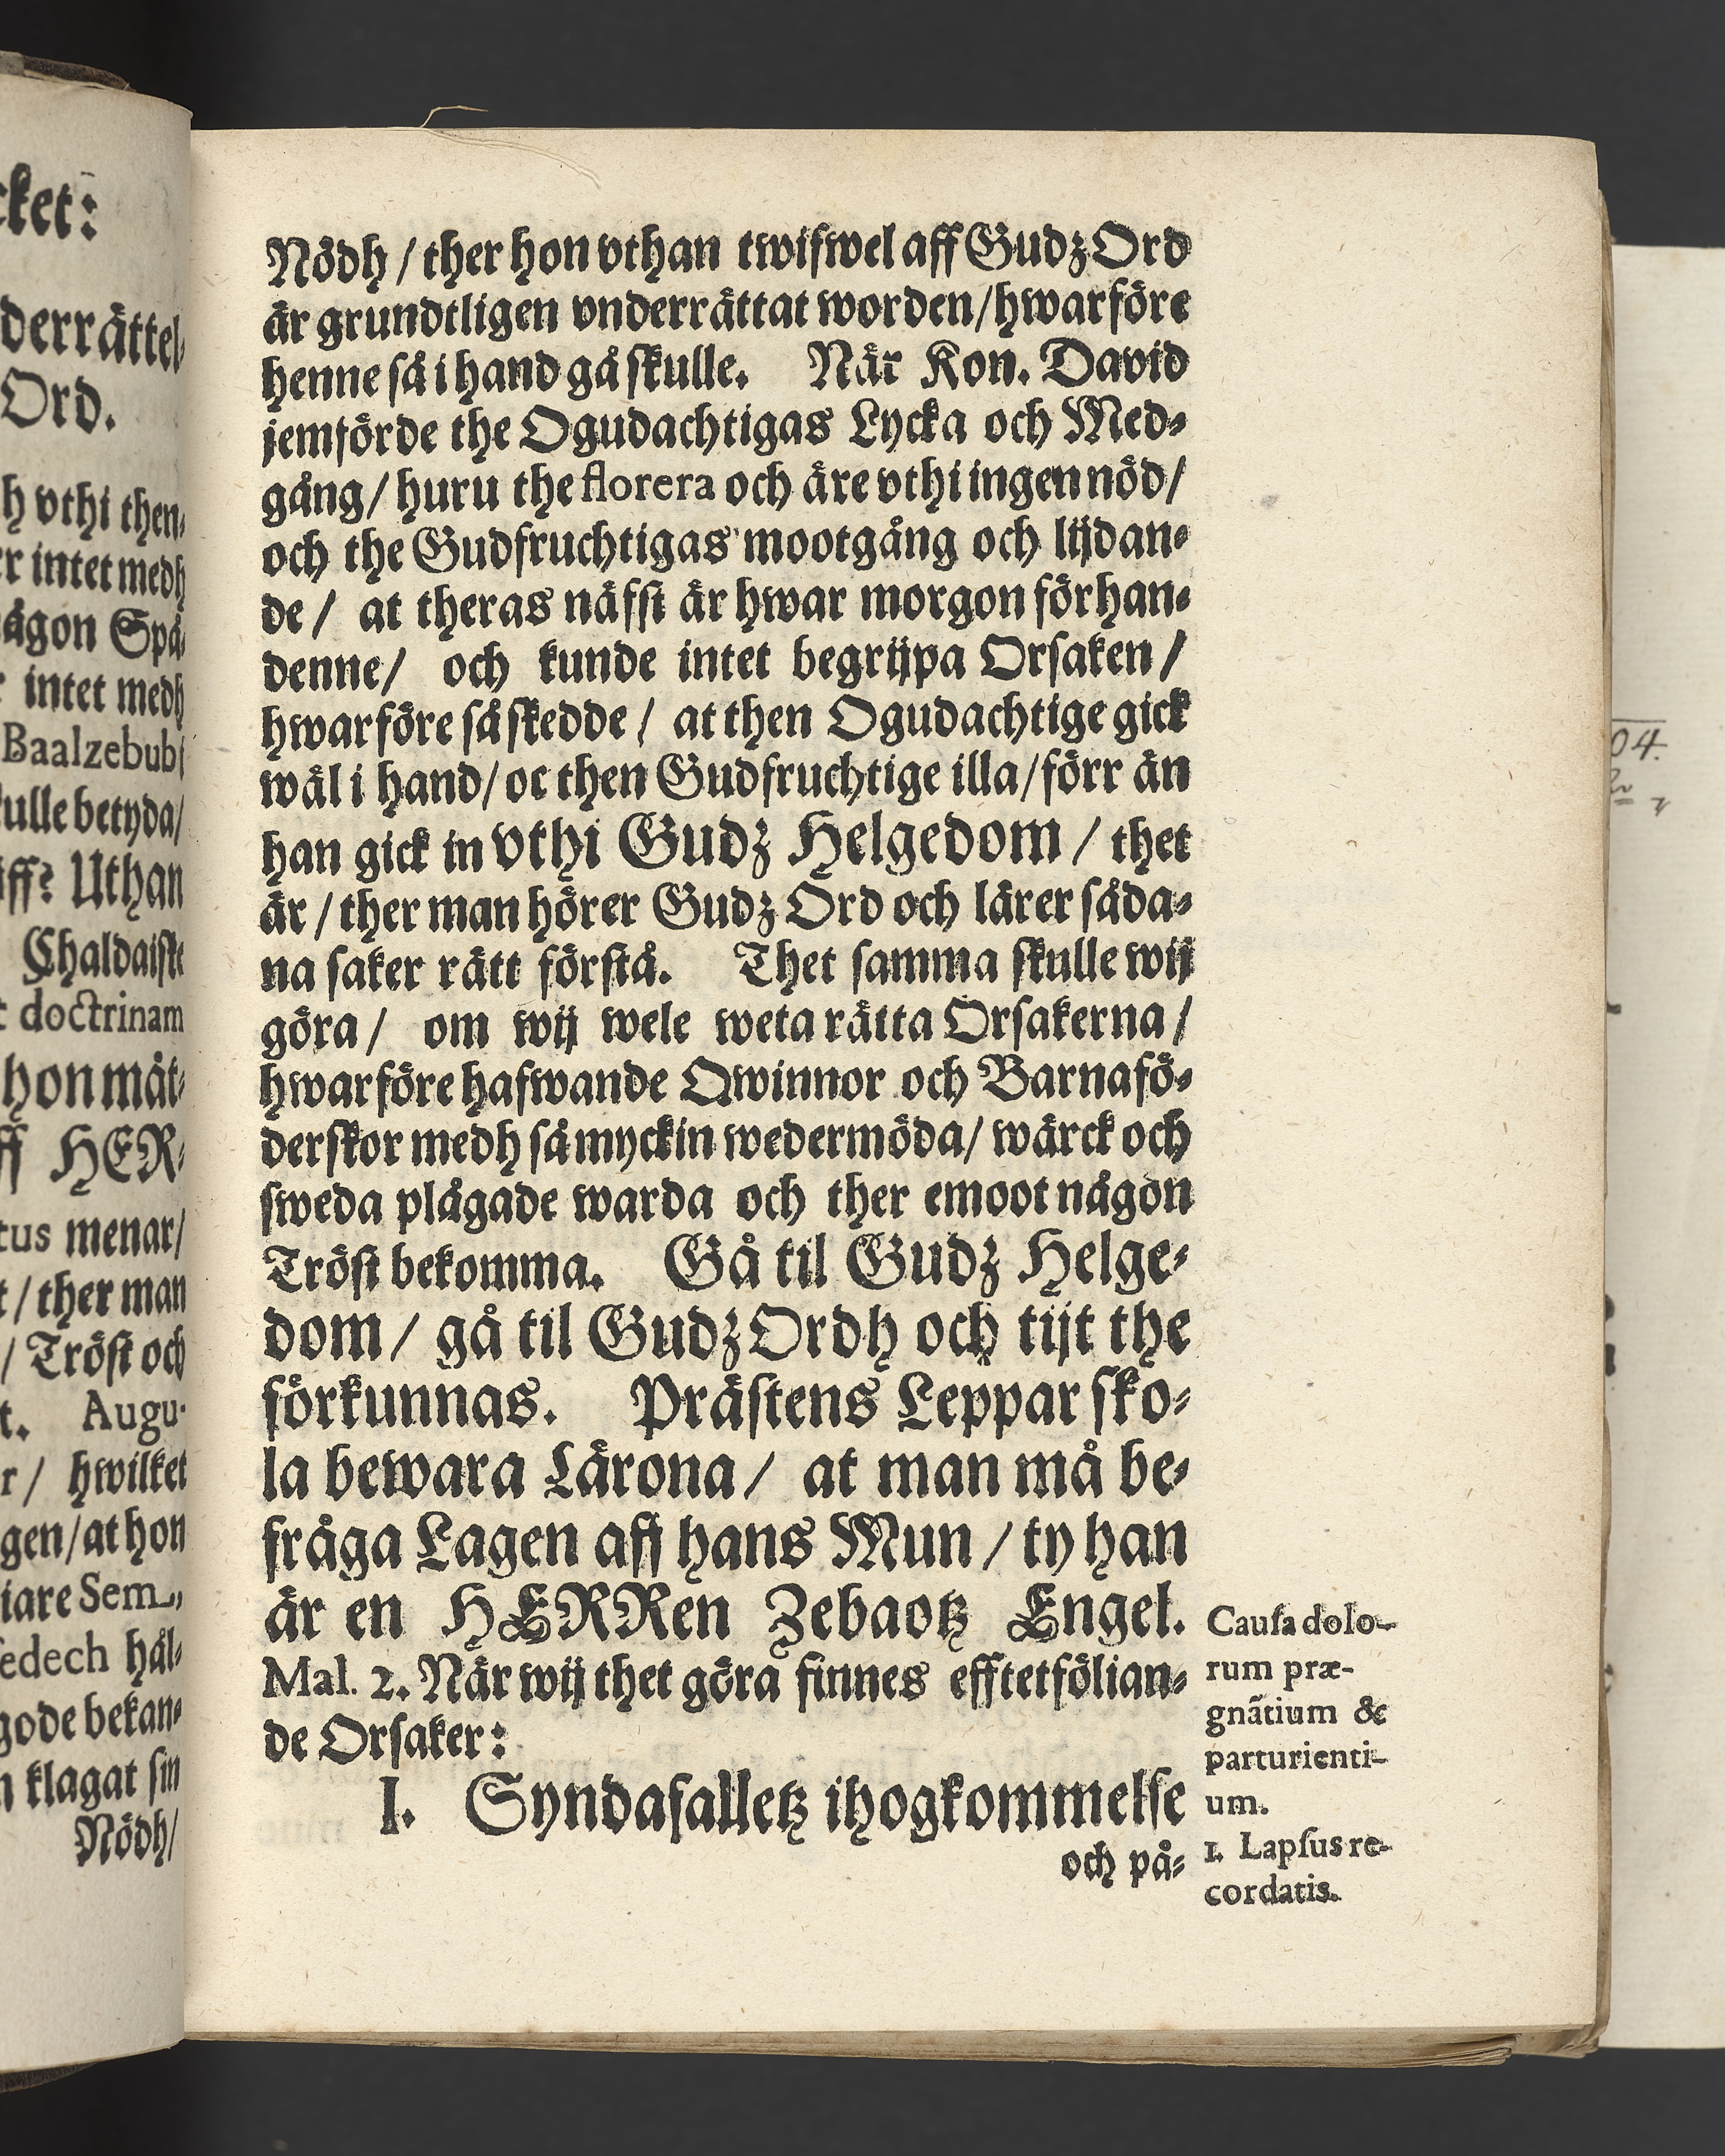 cket:
derrättel-
Ord.
h vthi then-
r intet medh
ågon Spå-
r intet medh
Baalzebubi
ulle betyda/
iff? Uthan
Chaldaiske
t doctrinam
hon måt-
ff HER-
tus menar/
t / ther man
/ Tröst och
t. Augu-
r / hwilket
gen/at hon
iare Sem-
edech hål-
gode bekan-
n klagat sin
Nödh/
Nödh / ther hon vthan twifwel aff Gudz Ord
är grundtligen vnderrättat worden/hwarföre
henne så i hand gå skulle. När Kon. David
jemförde the Ogudachtigas Lycka och Med-
gång/ huru the florera och äre vthi ingen nöd/
och the Gudfruchtigas mootgång och lijdan-
de / at theras näfst är hwar morgon förhan-
denne/ och kunde intet begrijpa Orsaken /
hwarföre så skedde / at then Ogudachtige gick
wäl i hand/ oc then Gudfruchtige illa/ förr än
han gick in vthi Gudz Helgedom / thet
är / ther man hörer Gudz Ord och lärer såda-
na saker rätt förstå. Thet samma skulle wij
göra / om wij wele weta rätta Orsakerna /
hwarföre hafwande Qwinnor och Barnafö-
derskor medh så myckin wedermöda/ wärck och
sweda plågade warda och ther emoot någon
Tröst bekomma. Gå til Gudz Helge-
dom / gå til Gudz Ordh och tijt the
förkunnas. Prästens Leppar sko-
la bewara Lärona / at man må be-
fråga Lagen aff hans Mun / ty han
är en HERRen Zebaotz Engel.
Mal. 2. När wij thet göra finnes efftetfölian-
de Orsaker:
I. Syndafalletz ihogkommelse
och på-
Causa dolo-
rum præ-
gnãtium &
parturienti-
um.
1. Lapsus re-
cordatis.
04.